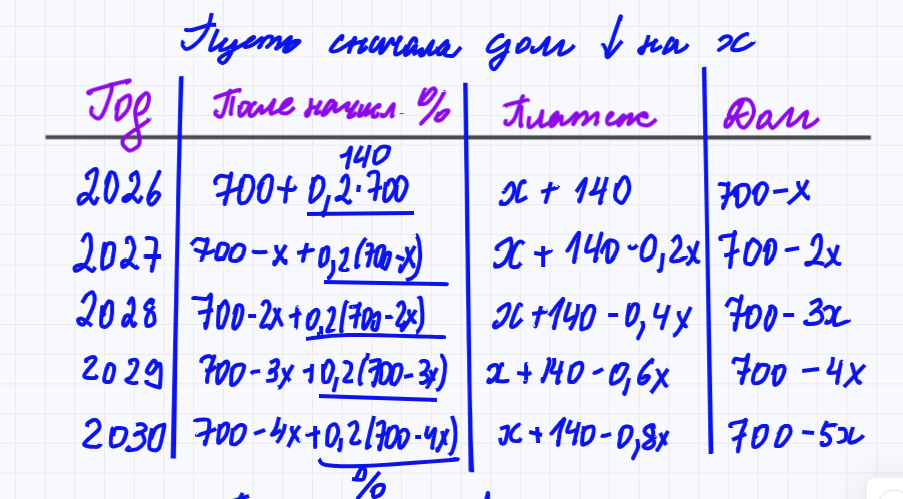 Пусть сначала долг ↓ на x
Год После начисл. % Платеж Долг
140
2026 700+0,2·700 x + 140 700-x
2027 700-x+0,2(700-x) x + 140-0,2x 700-2x
2028 700-2x+0,2(700-2x) x+140-0,4x 700-3x
2029 700-3x+0,2(700-3x) x+140-0,6x 700-4x
2030 700-4x+0,2(700-4x) x+140-0,8x 700-5x
%